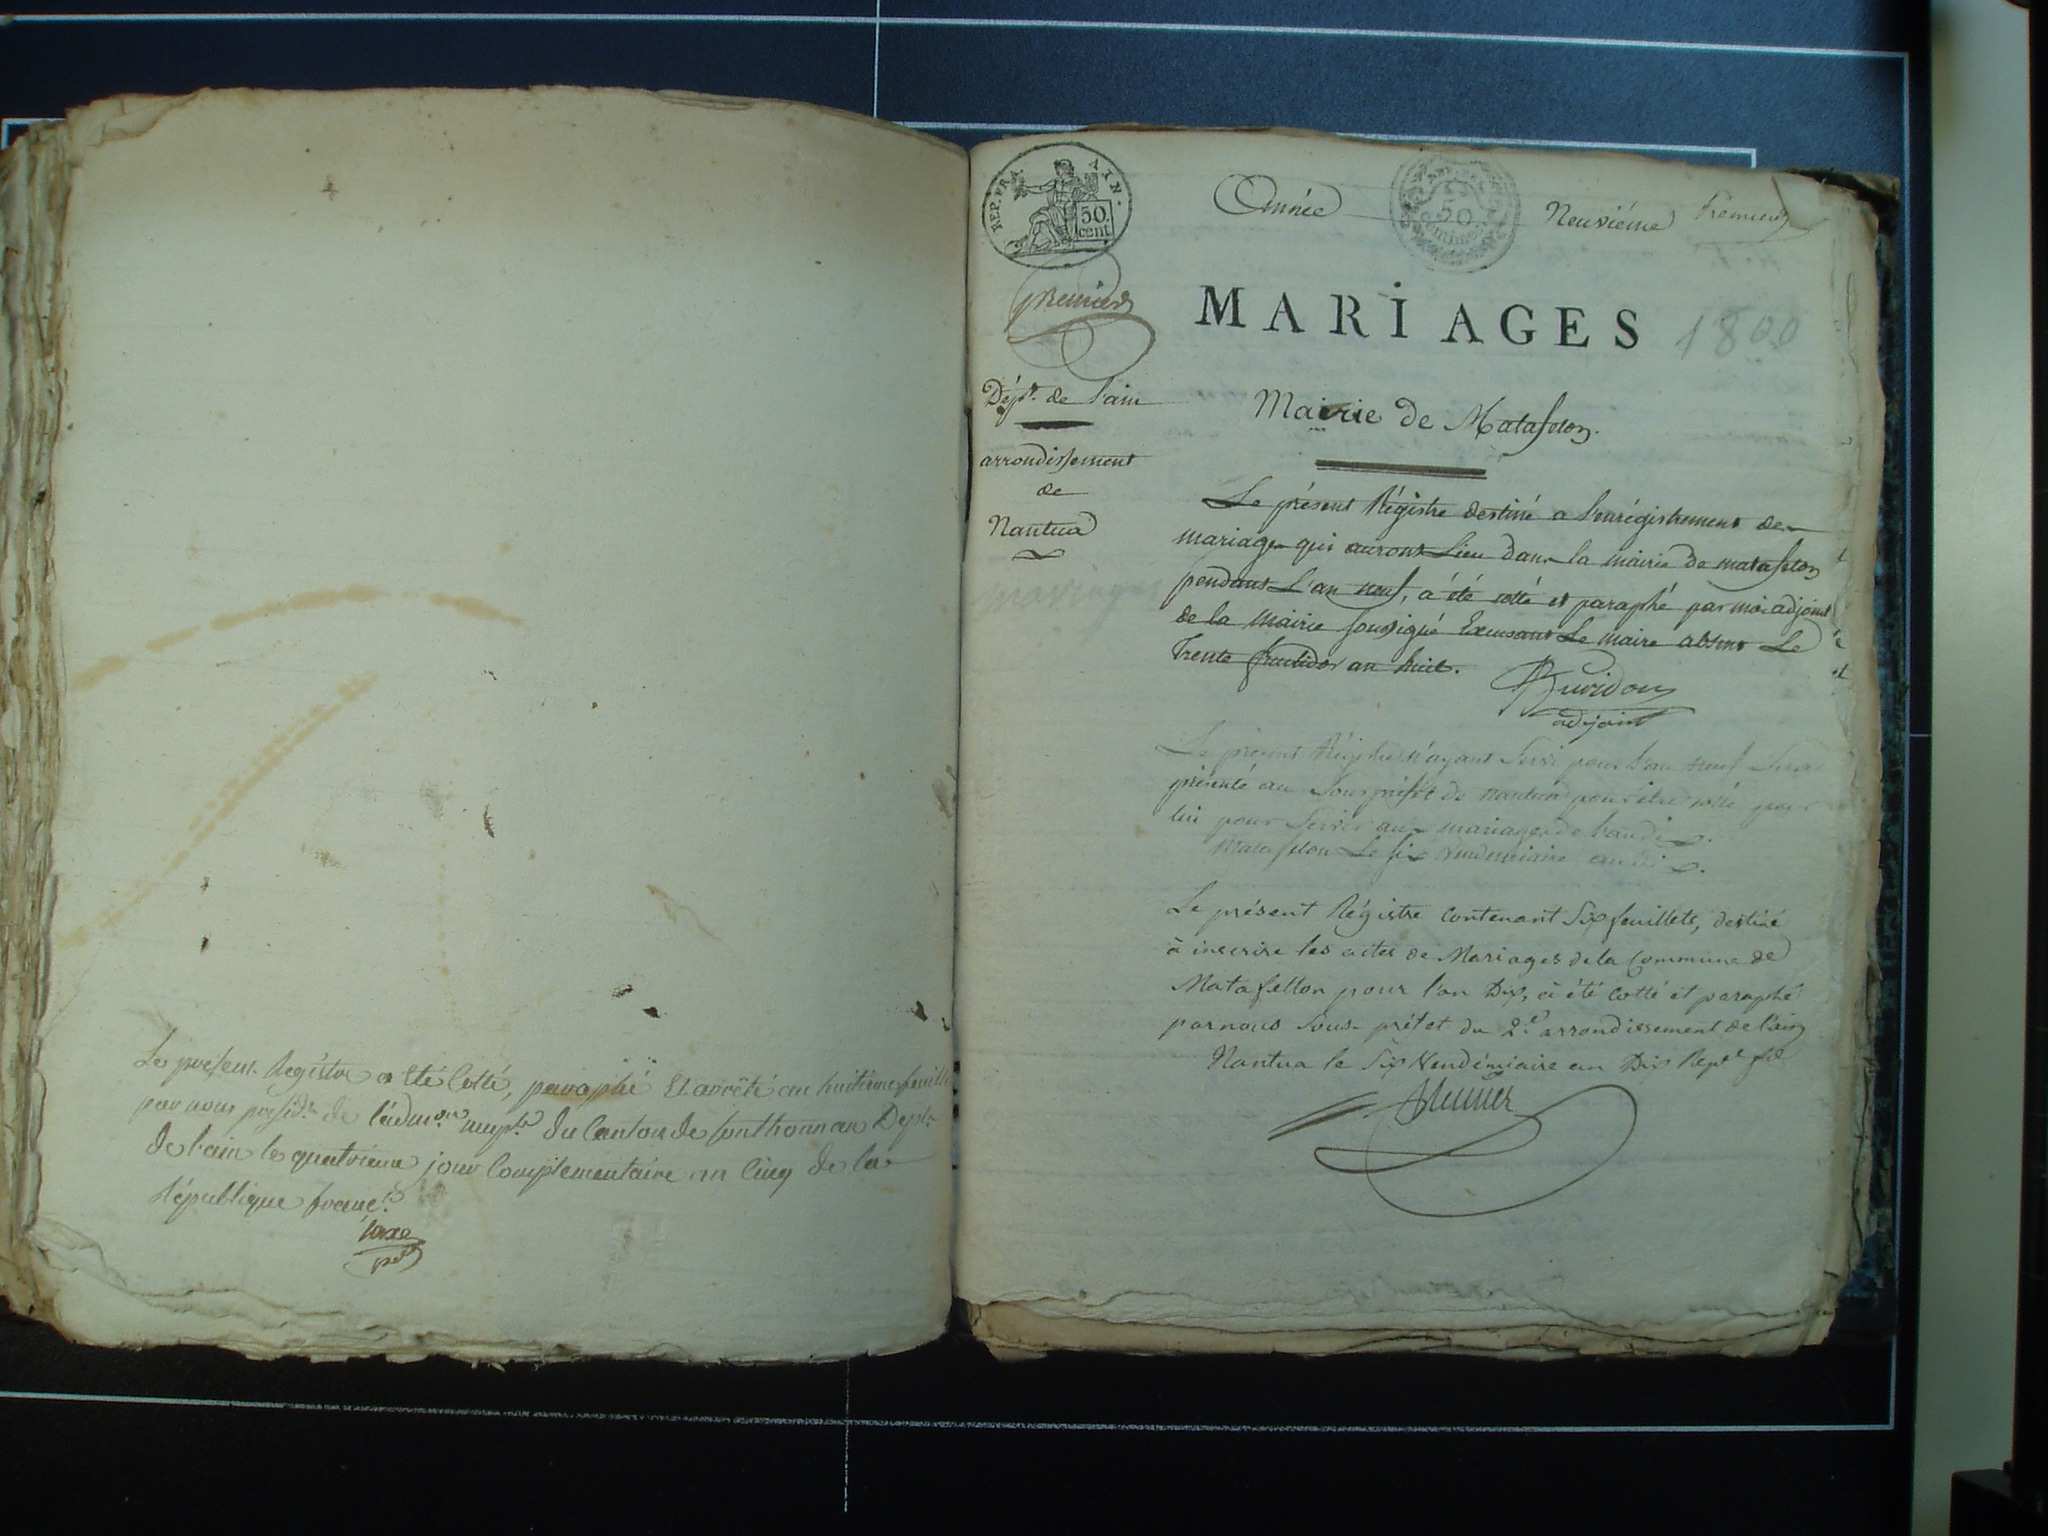 Le présent Registre a été Cotté, paraphé Et arrêté au huitieme feuillet
par nous presid.t de l'adm.on mup.le du Canton de Sonthonnax Dept.
de l'ain le quatrieme jour Complementaire an Cinq de la
République franc.se
REP. FRA. AIN.
50. cent
Année Neuviéme Premier
50 Centimes
MARIAGES 1800
Dép.t de l'ain
Mairie de Matafelon.
arrondissement
de
Nantua
Le présent Régistre destiné a l'enrégistrement de
mariages qui auront Lieu dans la mairie de matafelon
pendant L'an neuf, a été cotté et paraphé par moi adjoint
de la Mairie soussigné Excusant Le maire absent Le
Trente fructidor an huit.
adjoint
Le présent Régistre n'ayant Servi pour l'an neuf Sera
présenté au Sous préfet de nantua pour être cotté par
lui pour Servir aux mariages de l'an dix.
Matafelon Le six Vendemiaire an dix.
Le présent Régistre Contenant Six feuillets, destiné
à inscrire les actes de Mariages de la Commune de
Matafellon pour l'an Dix, a été Cotté et paraphé
par nous Sous-préfet du 2.e arrondissement de l'ain
Nantua le Six Vendémiaire an Dix Rep.e f.se